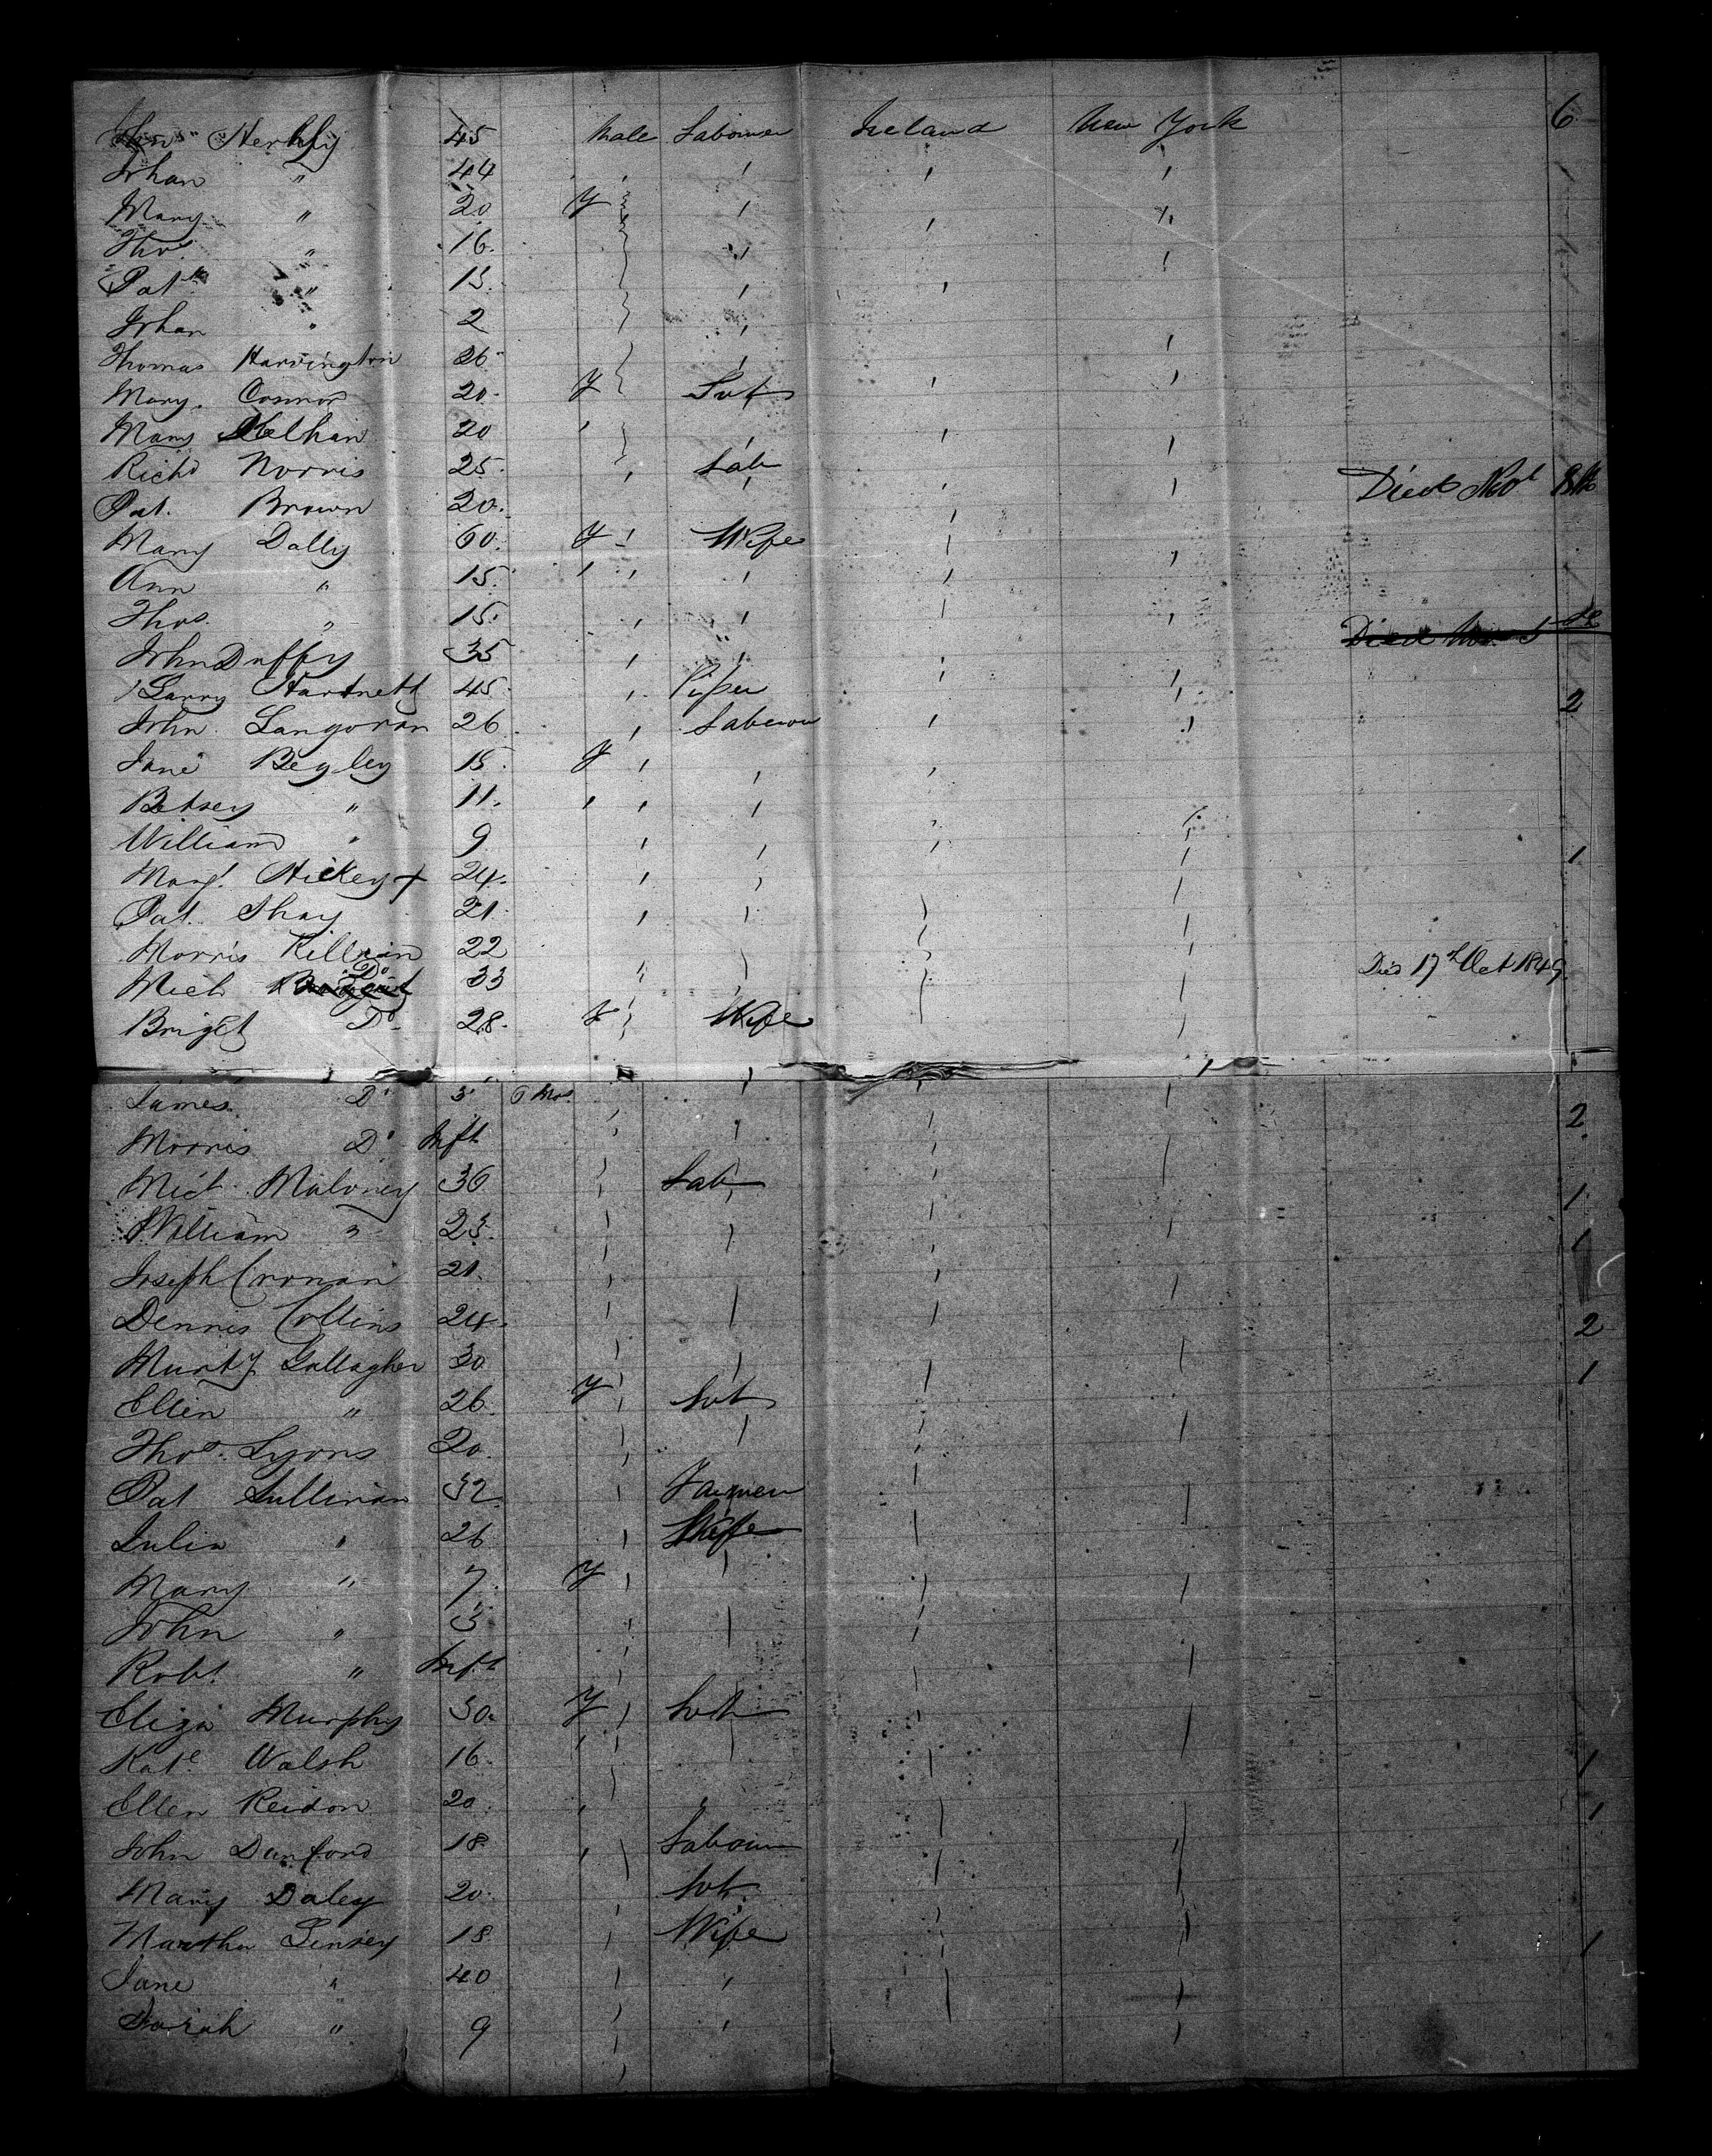 Herlihy 45 Male Labourer Ireland New York 6
Johan " 44
Mary " 20 F
Thos. " 16
Patk " 13
Johan " 2
Thomas Harrington 26
Mary Connor 20 F Svt
Mary 20
Richd Norris 25 Lab Died Nov 8th
Pat. Brown 20
Mary Dally 60 F Wife
Ann " 15
Thos. " 15
John Duffy 35
Larry Hartnett 45 Piper 2
John Langoran 26 Labourer
Jane Begley 15 F
Betsey " 11
William " 9
Margt. Hickey + 24 1
Pat. Shay 21
Morris 22
Mich Do 33 Died 17th Oct 1849
Briget Do 28 F Wife
James Do 3 6 Mos
Morris Do Inft 2
Mict. Maloney 36 Lab 1
William " 23 1
Joseph Cronan 21
Dennis Collins 24 2
Murty Gallagher 30 1
Ellen " 26 F Svt
Thos. Lyons 20
Pat Sullivan 32 Farmer
Julia " 26 Wife
Mary " 7 F
John " 3
Robt. " Inft
Eliza Murphy 30 F Svt
Kate Walsh 16 1
Ellen Reidon 20 1
John Dunford 18 Labour
Mary Daley 20 Svt
Martha Linsey 18 Wife 1
Jane " 40
Sarah " 9